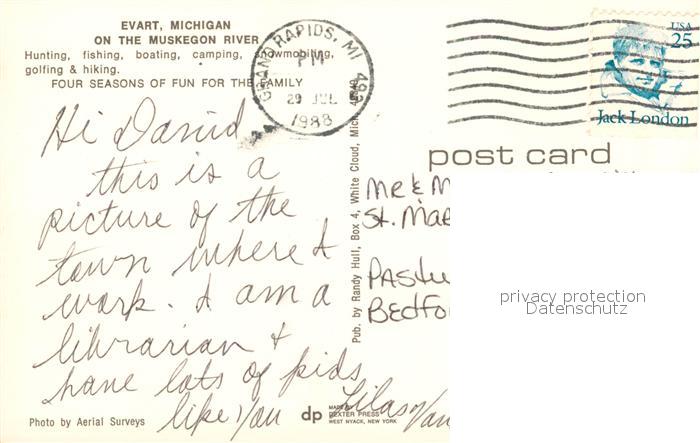 EVART, MICHIGAN
ON THE MUSKEGON RIVER
Hunting, fishing, boating, camping, snowmobiling,
golfing & hiking.
FOUR SEASONS OF FUN FOR THE FAMILY
Hi David
this is a
picture of the
town where I
work. I am a
librarian &
have lots of kids
like you
Lilas Van
Photo by Aerial Surveys
Pub. by Randy Hull, Box 4, White Cloud, Mich.
dp
MADE BY
DEXTER PRESS
WEST NYACK, NEW YORK
GRAND RAPIDS, MI
PM
29 JUL
1988
USA
25
Jack London
post card
Mr & M
St. Mar
Paste
Bedfo
privacy protection
Datenschutz